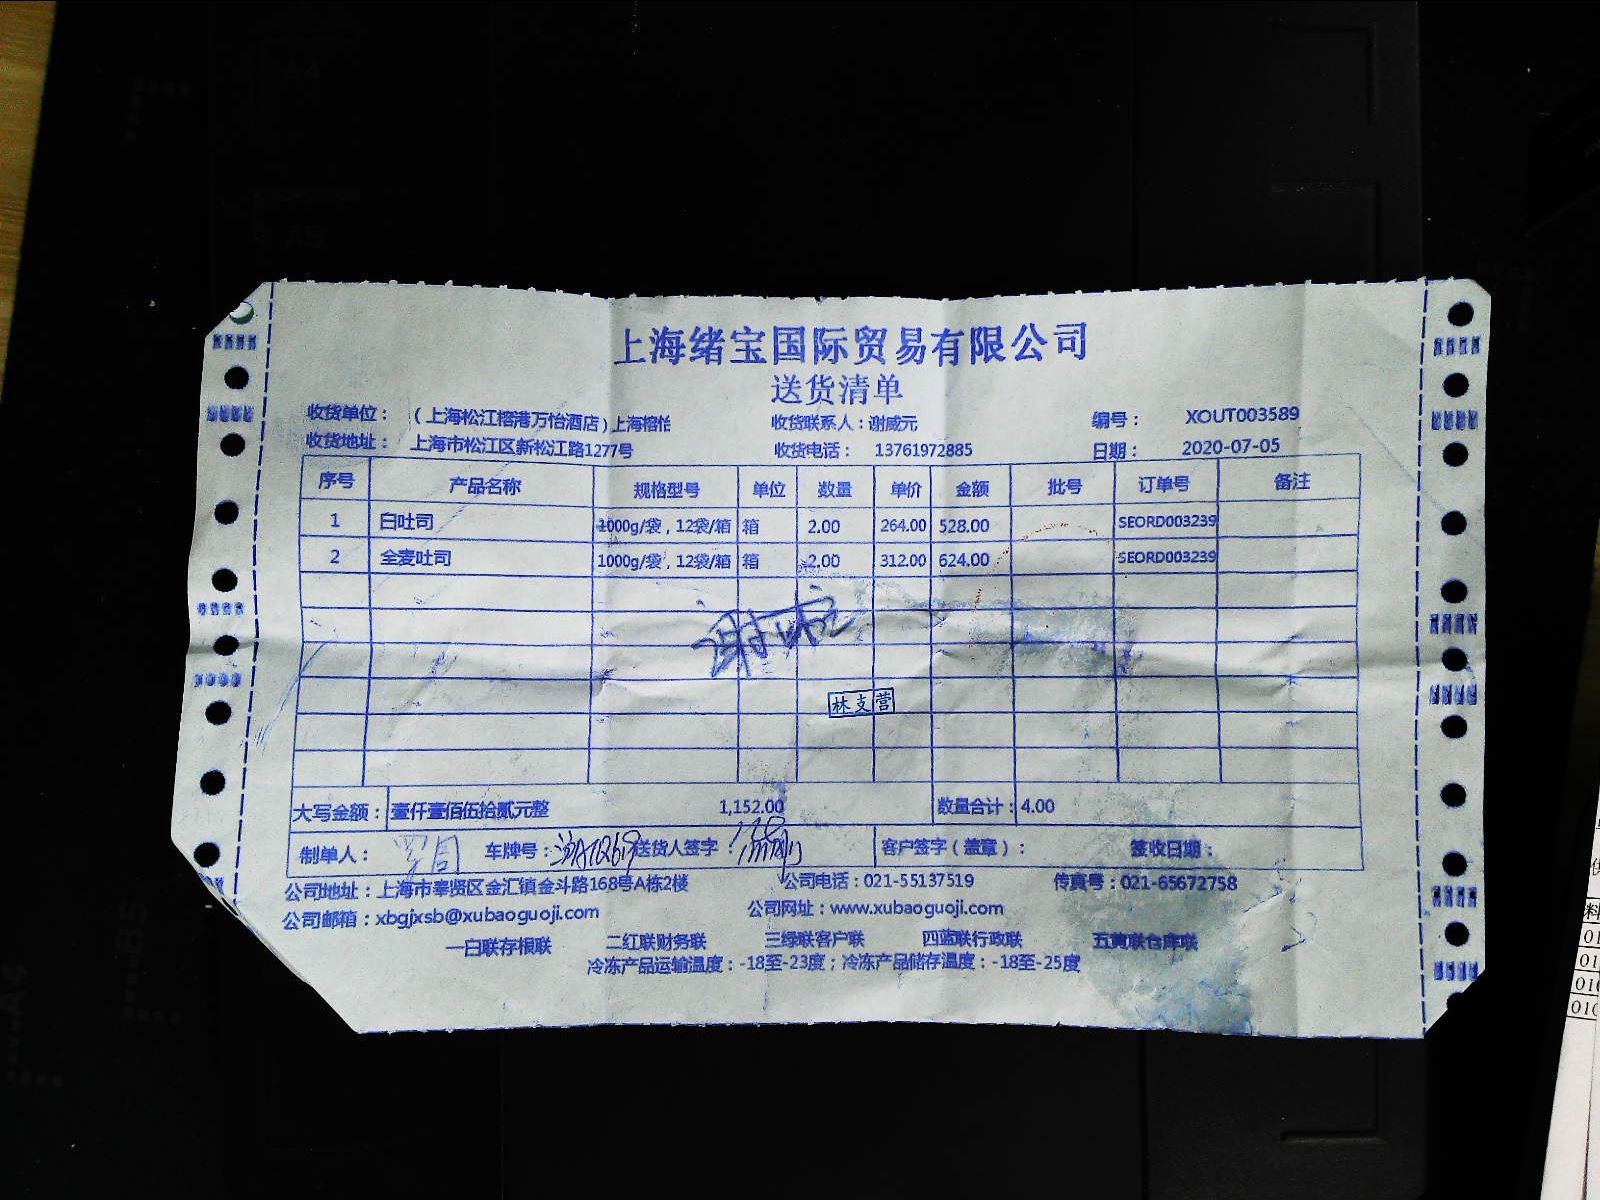 上海绪宝国际贸易有限公司
送货清单
收货单位：（上海松江榕港万怡酒店）上海榕怡 收货联系人：谢威元 编号： XOUT003589
收货地址： 上海市松江区新松江路1277号 收货电话： 13761972885 日期： 2020-07-05
序号 产品名称 规格型号 单位 数量 单价 金额 批号 订单号 备注
1 白吐司 1000g/袋，12袋/箱 箱 2.00 264.00 528.00 SEORD003239
2 全麦吐司 1000g/袋，12袋/箱 箱 2.00 312.00 624.00 SEORD003239
林支营
大写金额： 壹仟壹佰伍拾贰元整 1,152.00 数量合计： 4.00
制单人： 车牌号： 送货人签字： 客户签字（盖章）： 签收日期：
公司地址：上海市奉贤区金汇镇金斗路168号A栋2楼 公司电话：021-55137519 传真号：021-65672758
公司邮箱：xbgjxsb@xubaoguoji.com 公司网址：www.xubaoguoji.com
一白联存根联 二红联财务联 三绿联客户联 四蓝联行政联 五黄联仓库联
冷冻产品运输温度：-18至-23度；冷冻产品储存温度：-18至-25度